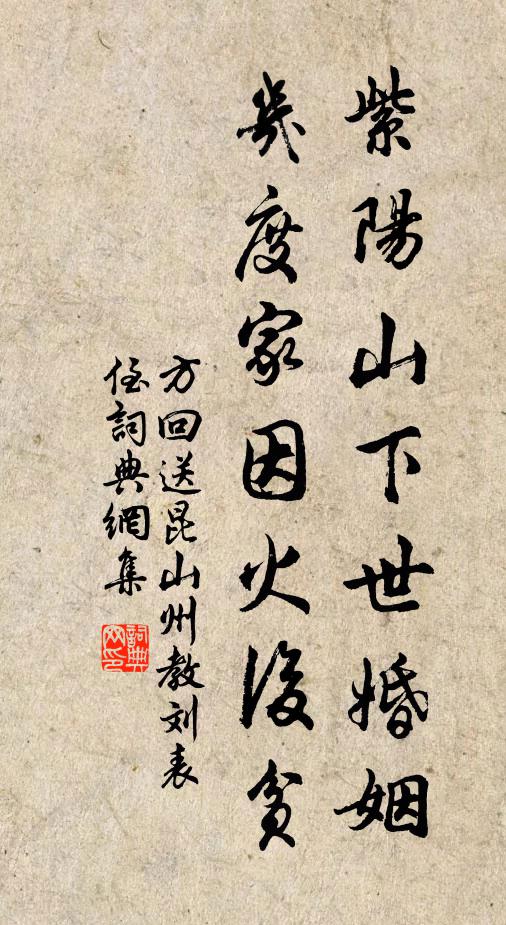 紫陽山下世婚姻
幾度家因火後貧
方回送昆山州教刘表
侄詞典網集
詞典
网印